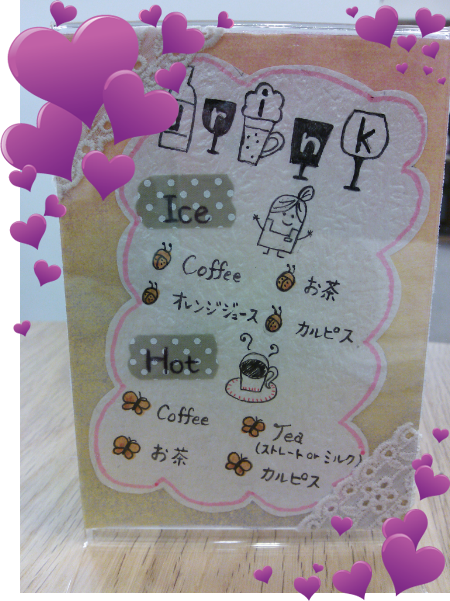 drink
Ice
Coffee
お茶
オレンジジュース
カルピス
Hot
Coffee
Tea
(ストレート or ミルク)
お茶
カルピス